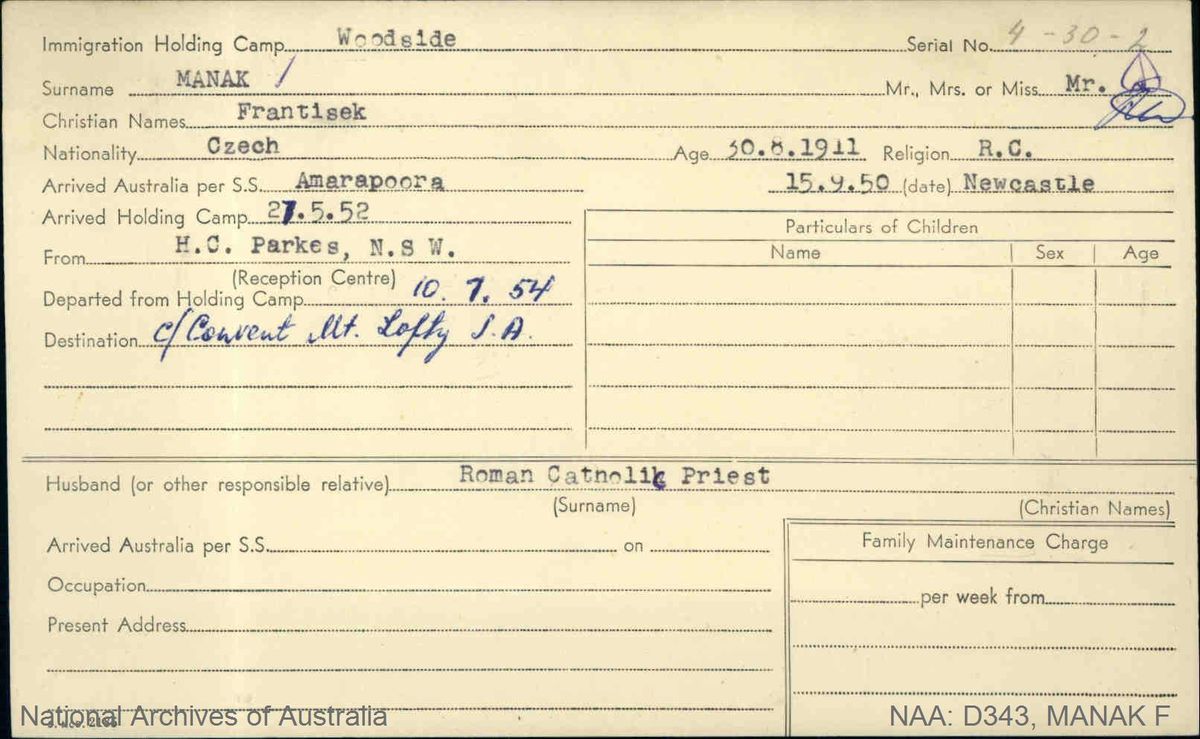 Immigration Holding Camp Woodside Serial No. 4-30-2
Surname MANAK / Mr., Mrs. or Miss Mr.
Christian Names Frantisek
Nationality Czech Age 30.8.1911 Religion R.C.
Arrived Australia per S.S. Amarapoora 15.9.50 (date) Newcastle
Arrived Holding Camp 27.5.52
Particulars of Children
From H.C. Parkes, N.S W.
Name Sex Age
(Reception Centre)
Departed from Holding Camp 10.7.54
Destination c/Convent Mt. Lofty S.A.
Husband (or other responsible relative) Roman Catholic Priest
(Surname) (Christian Names)
Arrived Australia per S.S. on
Family Maintenance Charge
Occupation
per week from
Present Address
National Archives of Australia
NAA: D343, MANAK F